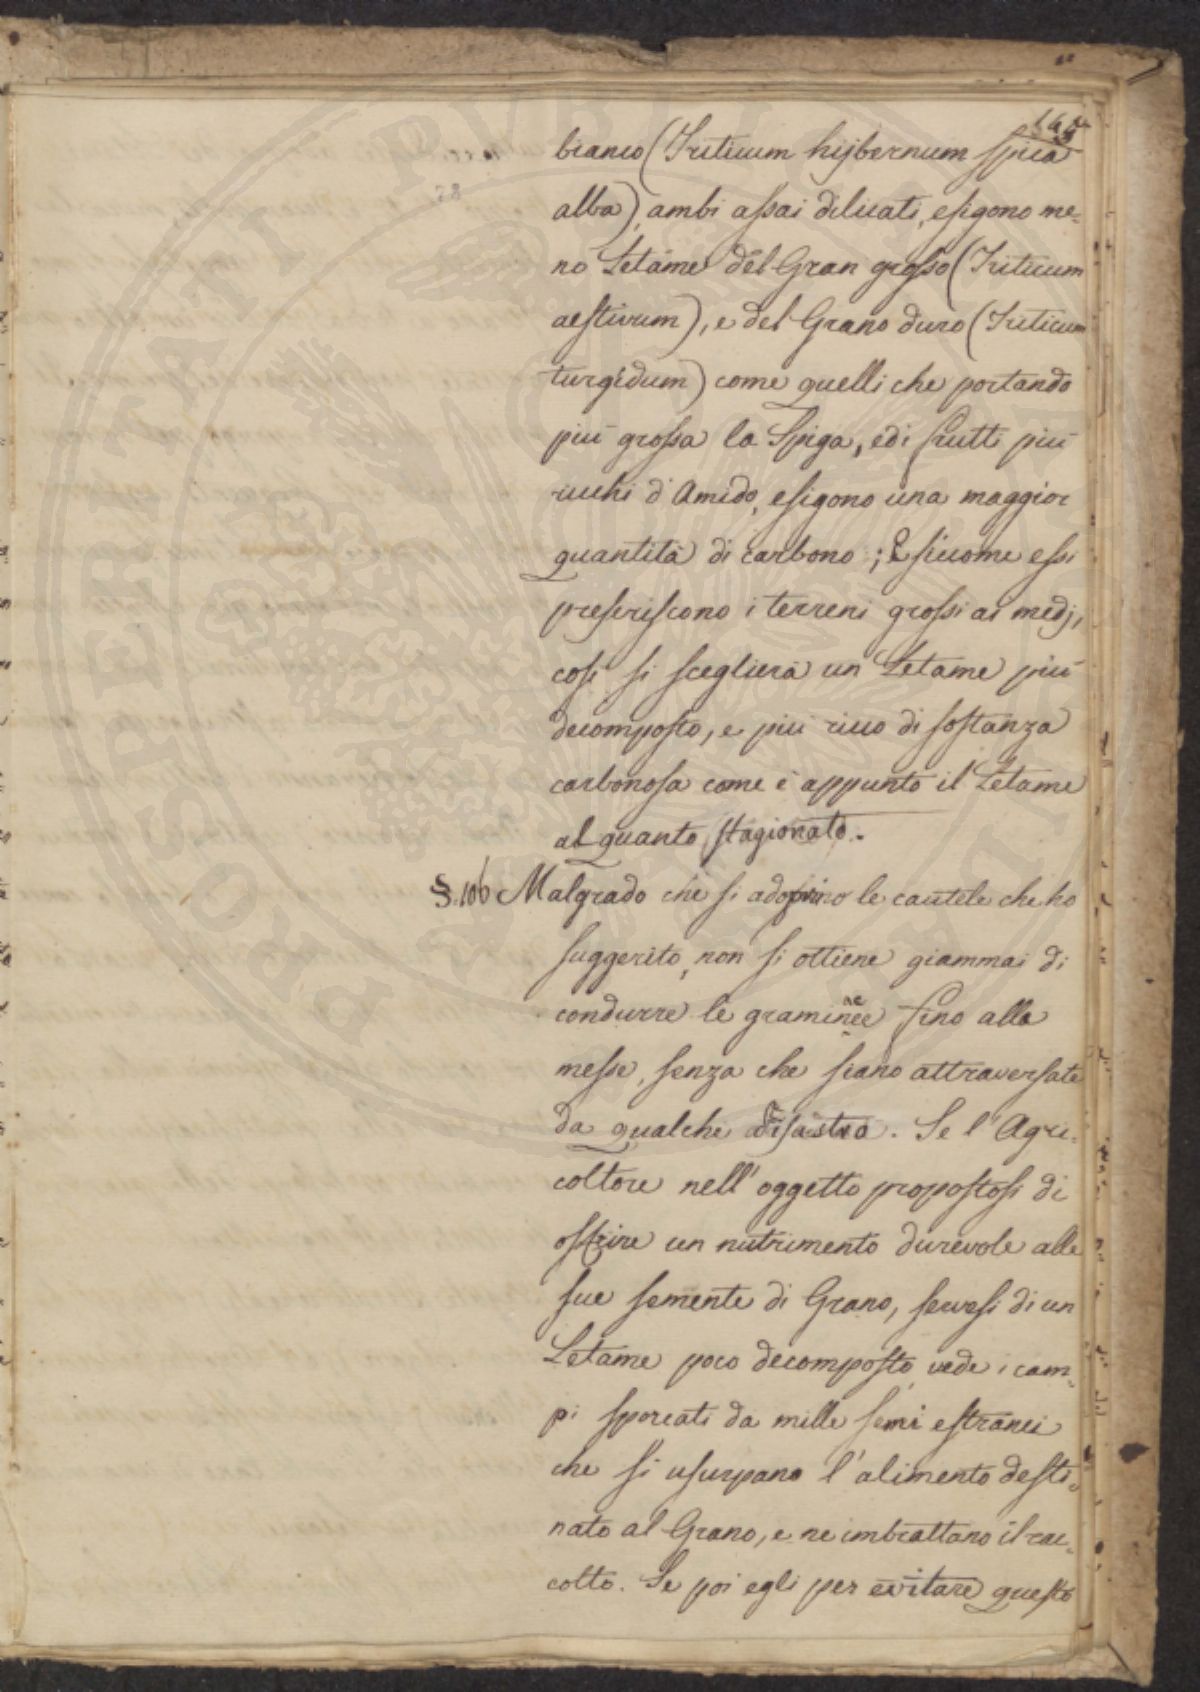 145
bianco (Triticum hijbernum spica
alba), ambi assai dilicati, esigono me=
no Letame del Gran grosso (Triticum
aestivum), e del Grano duro (Triticum
turgidum) come quelli che portando
più grossa la Spiga, edi frutti più
ricchi d'Amido, esigono una maggior
quantità di carbono; E siccome essi
preferiscono i terreni grossi ai medj,
così si sceglierà un Letame più
decomposto, e più ricco di sostanza
carbonosa come è appunto il Letame
al quanto stagionato.
§.106 Malgrado che si adoprino le cautele che ho
suggerito, non si ottiene giammai di
condurre le graminee fino alla
messe, senza che siano attraversate
da qualche disastro. Se l'Agri=
coltore nell'oggetto propostosi di
offrire un nutrimento durevole alle
sue semente di Grano, servesi di un
Letame poco decomposto, vede i cam=
pi sporcati da mille semi estranei
che si usurpano l'alimento desti=
nato al Grano, e ne imbrattano il rac=
colto. Se poi egli per evitare questo
PROSPERITATI PVBLICAE